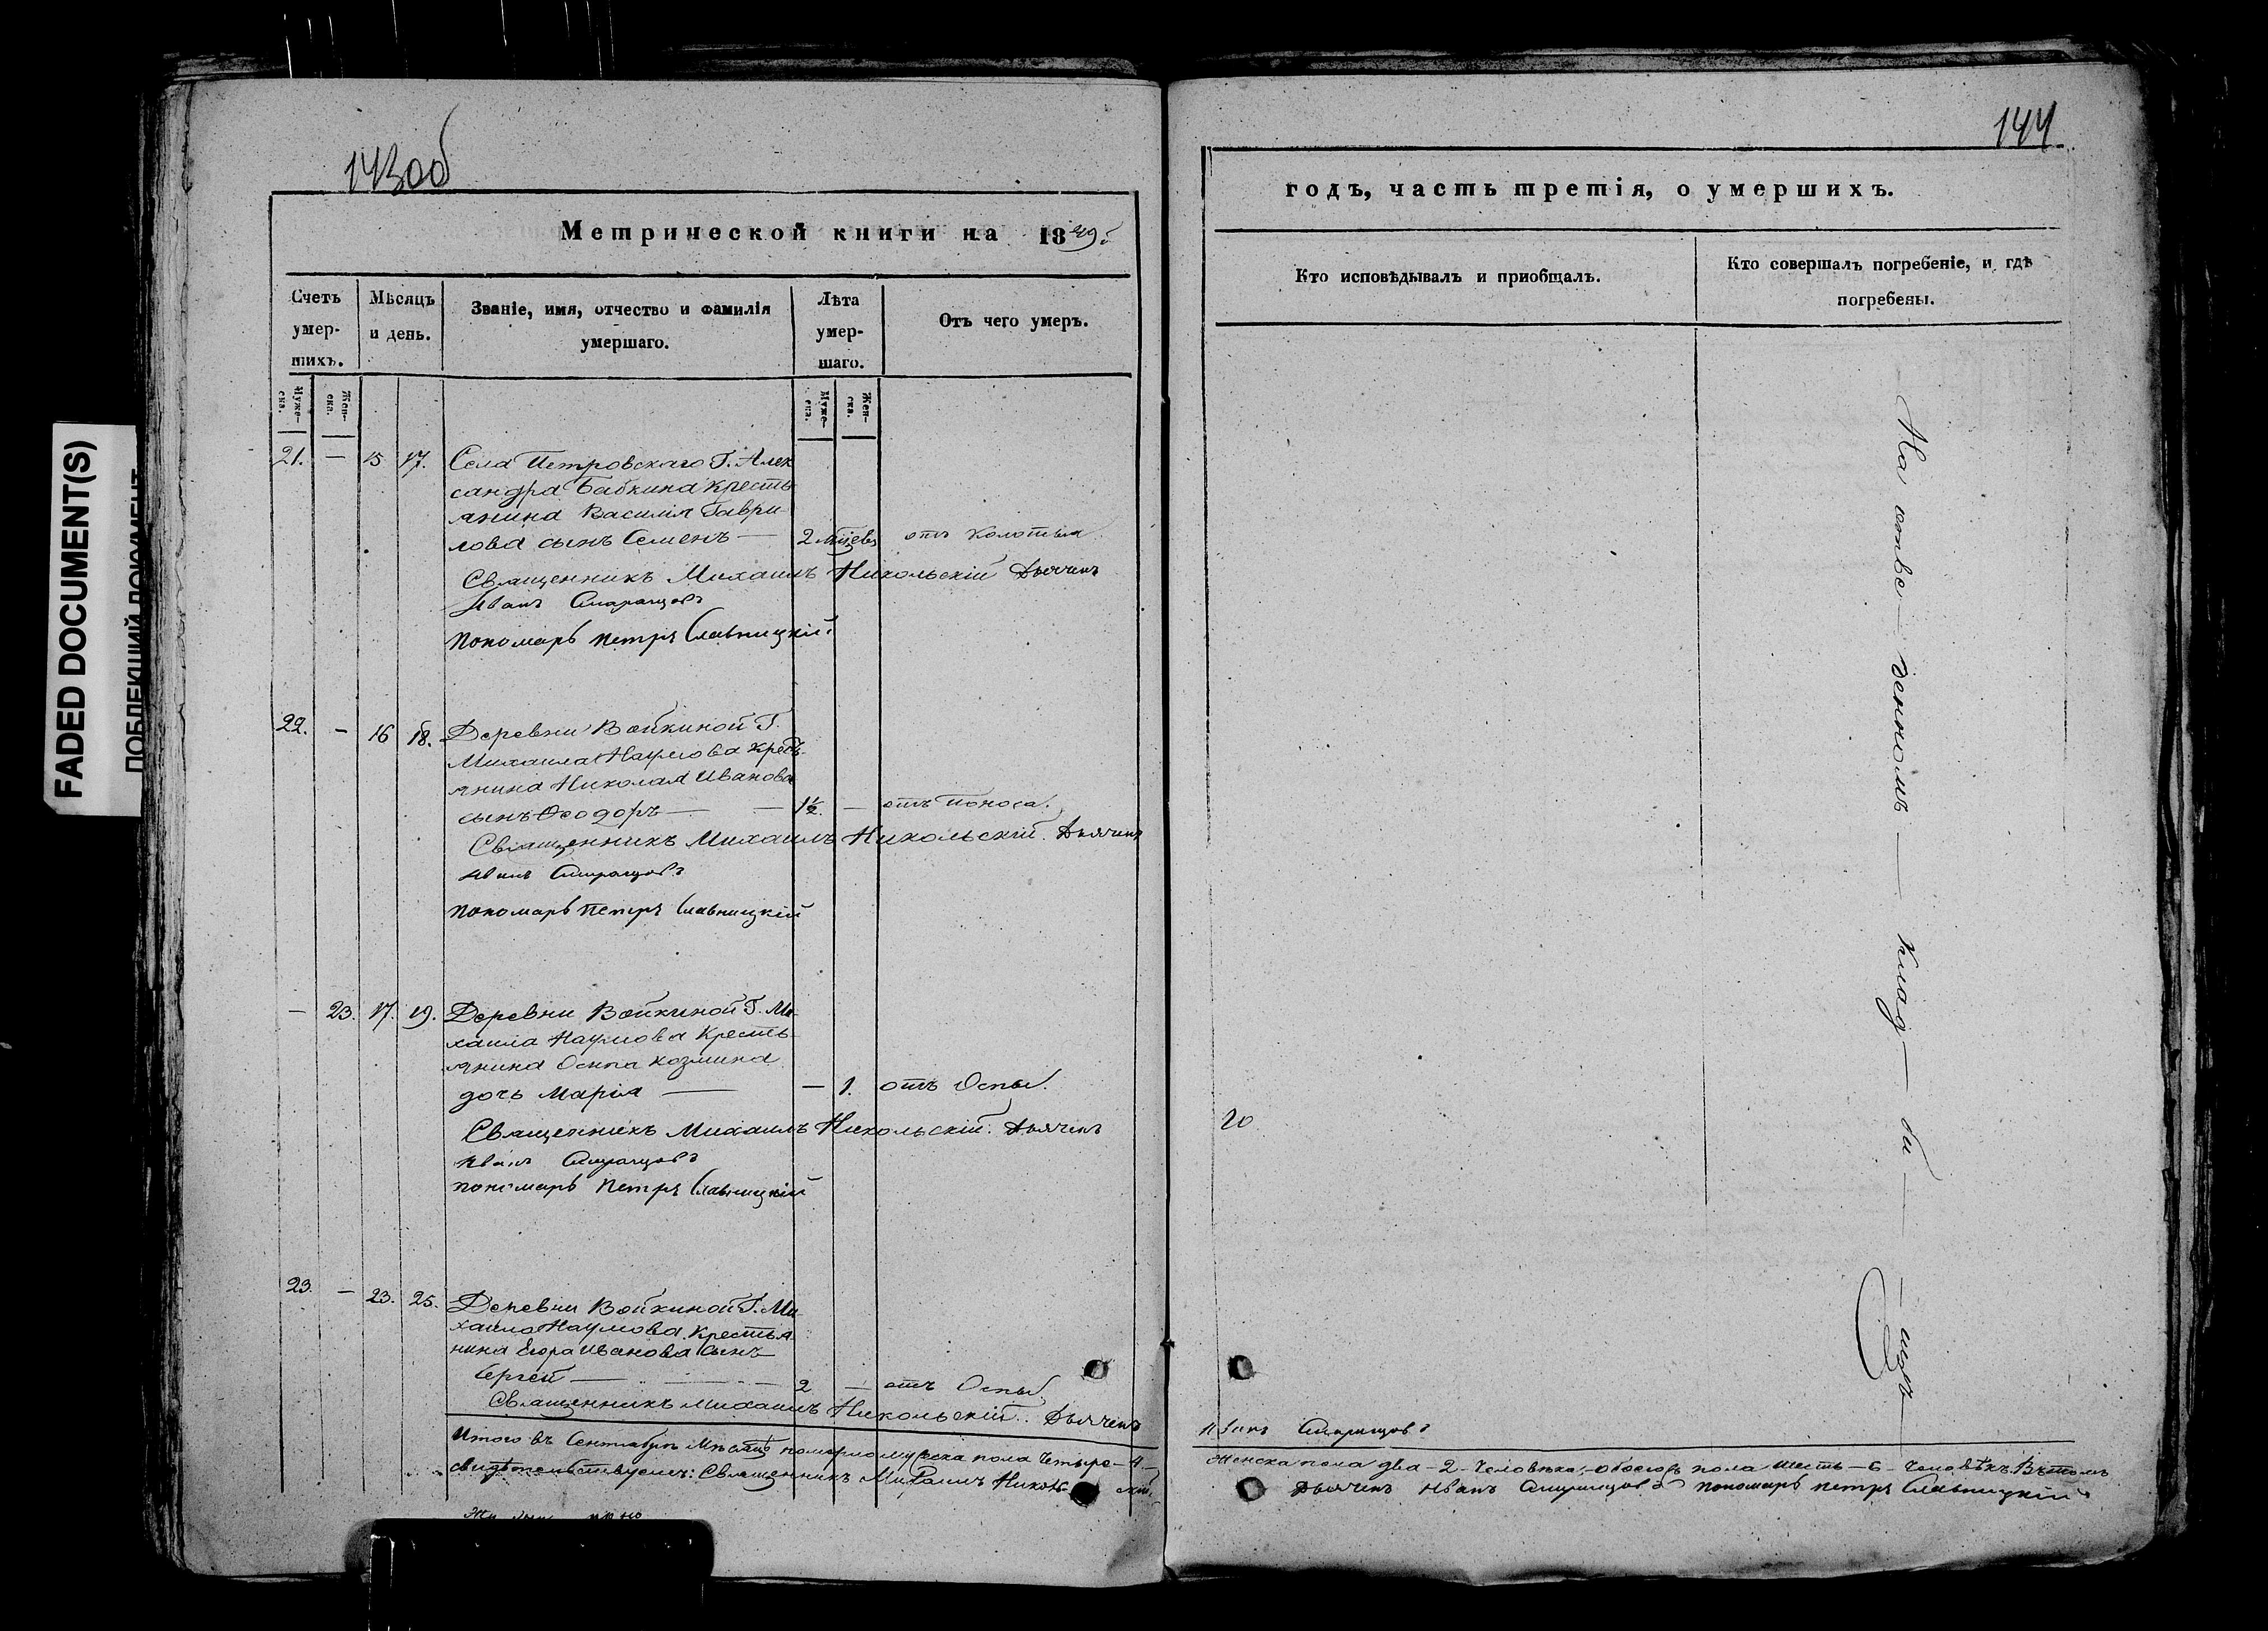 FADED DOCUMENT(S)
ПОБЛЕКШИЙ ДОКУМЕНТ
143об
Метрической книги на 1849й
Счетъ умер- шихъ.
Мѣсяцъ и день.
Званіе, имя, отчество и фамилія умершаго.
Лѣта умер- шаго.
Отъ чего умеръ.
Муже- ска.
Жен- ска.
Муже- ска.
Жен- ска.
21. — 15 17. Села Петровскаго Г. Алек
сандра Бабкина кресть
янина Василія Гаври
лова сынъ Семенъ — 2 мѣсцевъ отъ колотья
Священникъ Михаилъ Никольскій Дьячекъ
Иванъ
пономарь петръ Славницкій
22. — 16 18. Деревни Войкиной Г.
Михаила Наумова кресть
янина Николая Иванова
сынъ Ѳеодоръ — — 1½ — отъ поноса.
Священникъ Михаилъ Никольскій. Дьячекъ
Иванъ
пономарь петръ Славницкій
— 23. 17. 19. Деревни Войкиной Г. Ми
хаила Наумова Кресть
янина Осипа Козмина
дочь Марія — — 1. отъ Оспы.
Священникъ Михаилъ Никольскій. Дьячекъ
Иванъ
пономарь петръ Славницкій
23. — 23. 25. Деревни Войкиной Г. Ми
хаила Наумова Крестья
нина Егора Иванова сынъ
Сергей — — 2 — отъ Оспы
Священникъ Михаилъ Никольскій. Дьячекъ
Итого въ Сентябрѣ Мѣсяцѣ померло мужеска пола Четыре — 4 —
свидѣтельствуемъ: Священникъ Михаилъ Николь скій
144
годъ, часть третія, о умершихъ.
Кто исповѣдывалъ и приобщалъ.
Кто совершалъ погребеніе, и гдѣ погребены.
На отве — денномъ — клад — би — — щѣ
20
Иванъ
Женска пола два — 2 — Человѣка, — обоего пола шесть — 6 — Человѣкъ. Вчемъ
Дьячекъ Иванъ пономарь петръ Славницкій